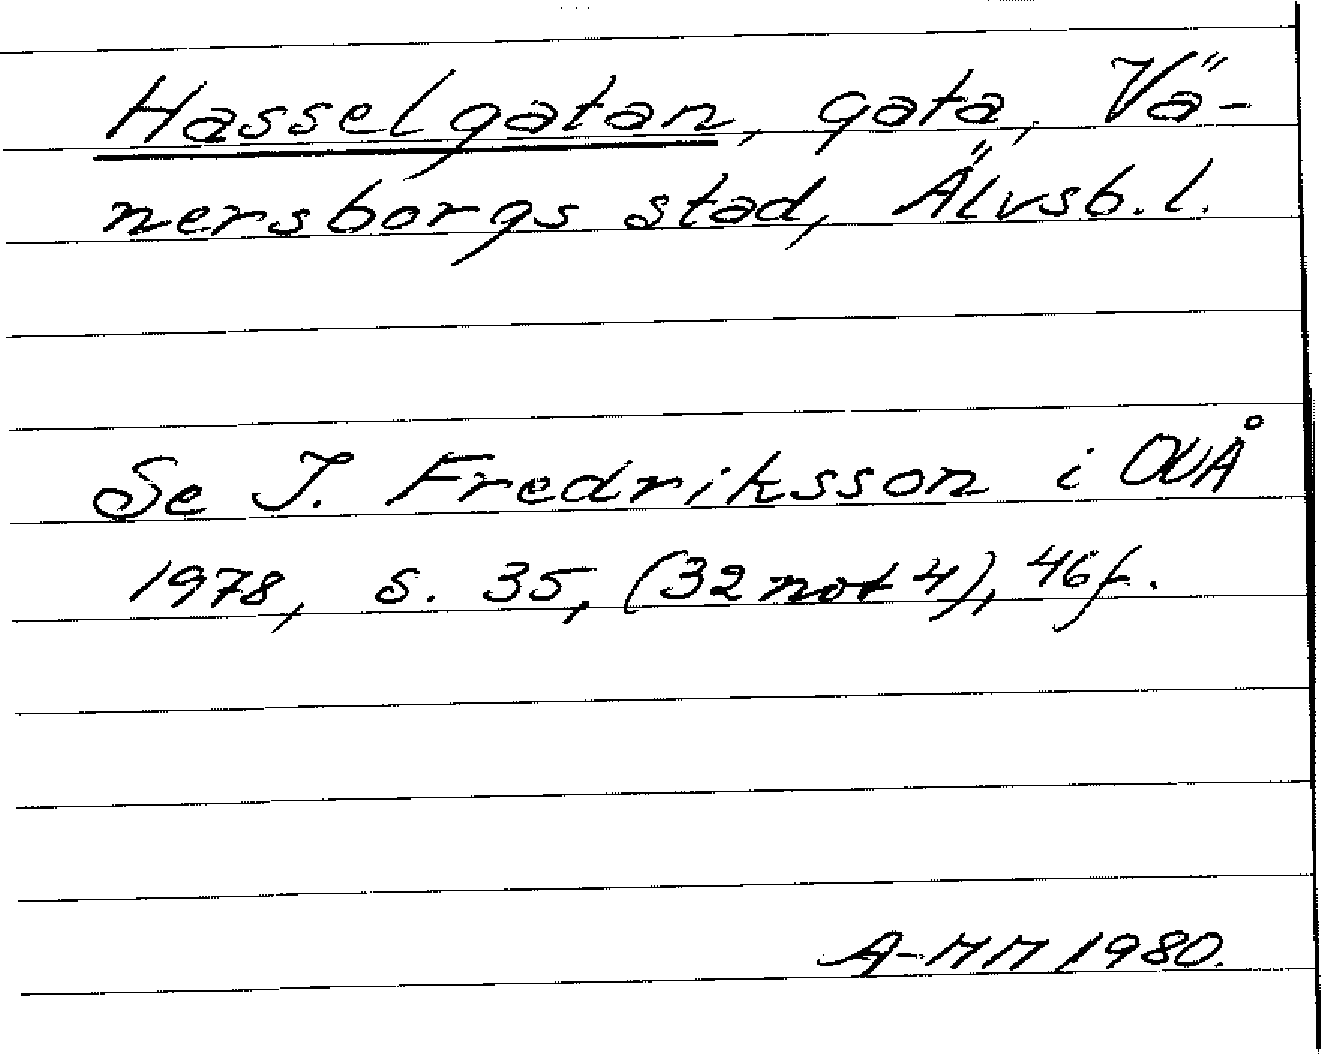 Hasselgatan, gata, Vä-
nersborgs stad, Älvsb. l.
Se I. Fredriksson i OUÅ
1978, s. 35, (32 not 4), 46f.
A-MM 1980.